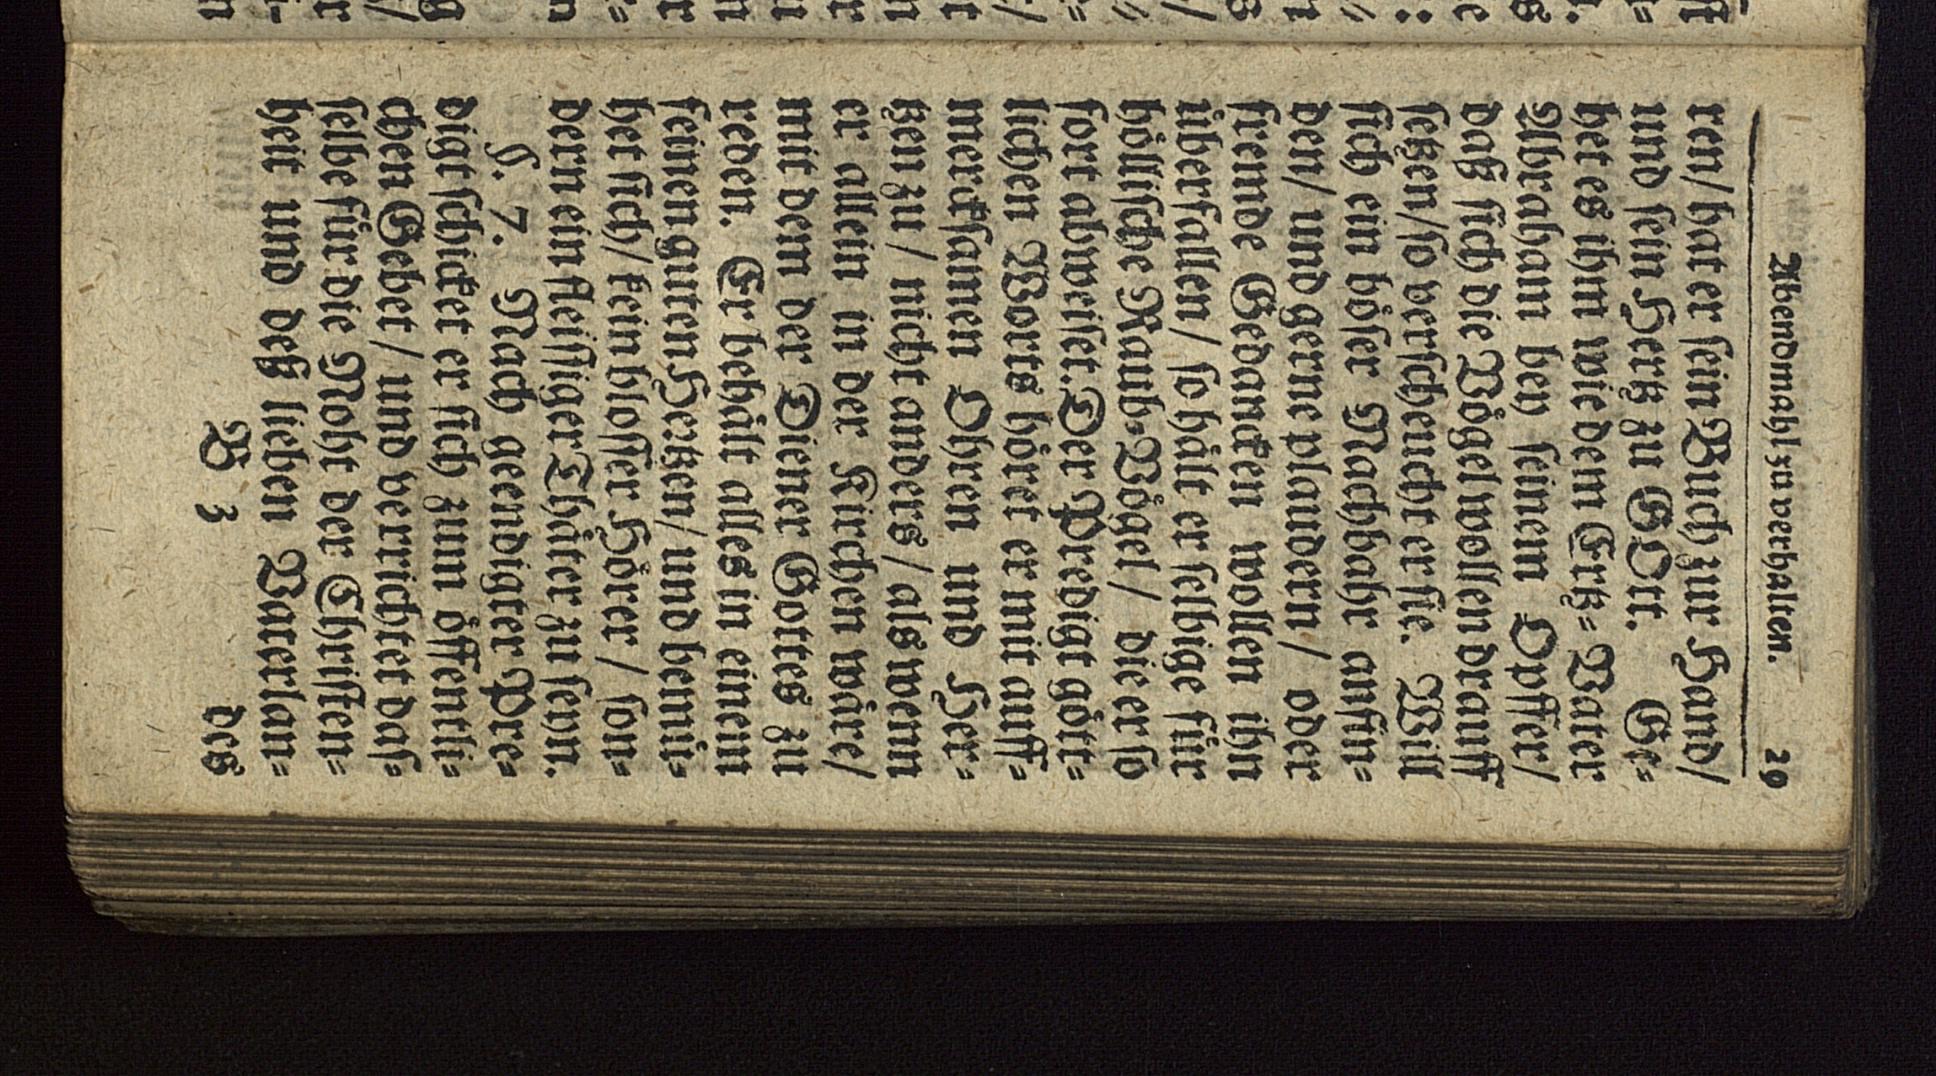 Abendmahl zu verhalten. 29
ren/ hat er sein Buch zur Hand/
und sein Hertz zu GOtt. Ge-
het es ihm wie dem Ertz-Vater
Abraham bey seinem Opffer/
daß sich die Vögel wollen drauff
setzen/ so verscheucht er sie. Will
sich ein böser Nachbahr anfin-
den/ und gerne plaudern/ oder
fremde Gedancken wollen ihn
überfallen/ so hält er selbige für
höllische Raub-Vögel/ die er so
fort abweiset. Der Predigt gött-
lichen Worts höret er mit auff-
mercksamen Ohren und Her-
tzen zu/ nicht anders/ als wenn
er allein in der Kirchen wäre/
mit dem der Diener Gottes zu
reden. Er behält alles in einem
feinen guten Hertzen/ und bemü-
het sich/ kein blosser Hörer/ son-
dern ein fleissiger Thäter zu seyn.
§. 7. Nach geendigter Pre-
digt schicket er sich zum öffentli-
chen Gebet/ und verrichtet das-
selbe für die Noht der Christen-
heit und deß lieben Vaterlan-
B 3 des